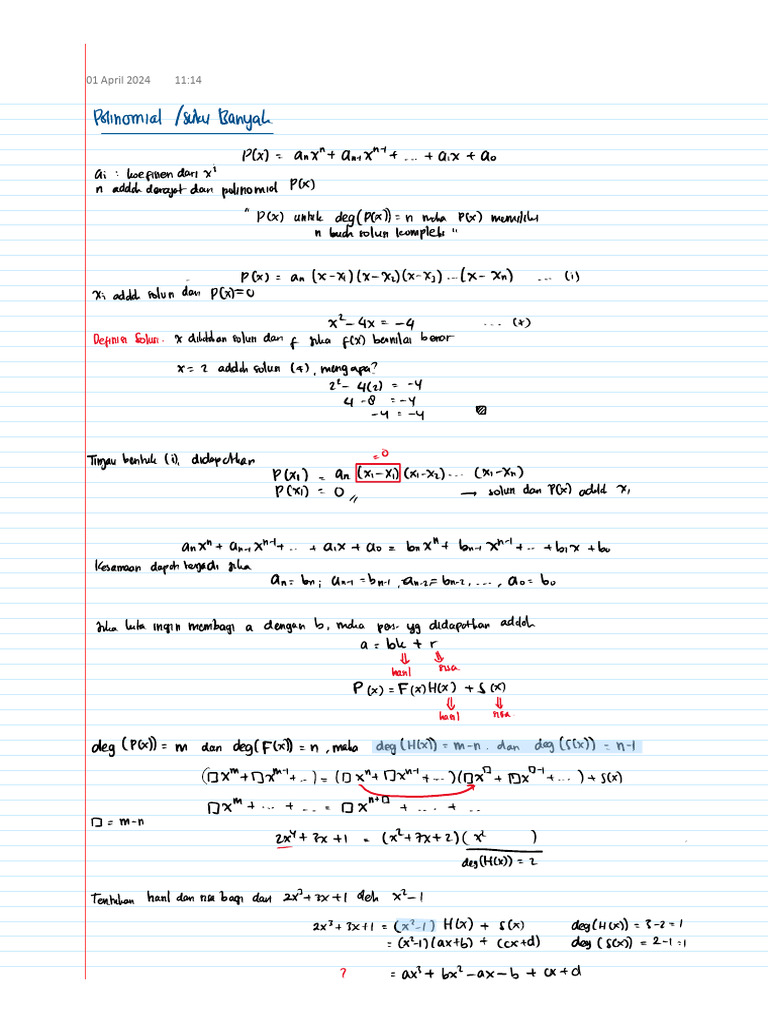 01 April 2024 11:14
Polinomial / Suku Banyak
P(x) = aₙxⁿ + aₙ₋₁xⁿ⁻¹ + ... + a₁x + a₀
aᵢ : koefisien dari xⁱ
n adalah derajat dari polinomial P(x)
" P(x) untuk deg(P(x)) = n maka P(x) memiliki
n buah solusi kompleks "
P(x) = aₙ (x-x₁)(x-x₂)(x-x₃) ... (x-xₙ) ... (i)
xᵢ adalah solusi dari P(x)=0
x² - 4x = -4 ... (*)
Definisi Solusi. x dikatakan solusi dari f jika f(x) bernilai benar
x = 2 adalah solusi (*), mengapa?
2² - 4(2) = -4
4 - 8 = -4
-4 = -4
Tinjau bentuk (i), didapatkan
= 0
P(x₁) = aₙ (x₁-x₁)(x₁-x₂) ... (x₁-xₙ)
P(x₁) = 0 // → solusi dari P(x) adalah x₁
aₙxⁿ + aₙ₋₁xⁿ⁻¹ + ... + a₁x + a₀ = bₙxⁿ + bₙ₋₁xⁿ⁻¹ + ... + b₁x + b₀
Kesamaan dapat terjadi jika
aₙ = bₙ ; aₙ₋₁ = bₙ₋₁ , aₙ₋₂ = bₙ₋₂ , ... , a₀ = b₀
Jika kita ingin membagi a dengan b, maka pers. yg didapatkan adalah
a = bk + r
hasil sisa
P(x) = F(x)H(x) + S(x)
hasil sisa
deg(P(x)) = m dan deg(F(x)) = n, maka deg(H(x)) = m-n dan deg(S(x)) = n-1
(□xᵐ + □xᵐ⁻¹ + ...) = (□xⁿ + □xⁿ⁻¹ + ...)(□x^□ + □x^(□-1) + ...) + S(x)
□xᵐ + ... + ... = □x^(n+□) + ... + ...
□ = m-n
2x⁴ + 7x + 1 = (x² + 7x + 2)( x² )
deg(H(x)) = 2
Tentukan hasil dan sisa bagi dari 2x³ + 3x + 1 oleh x² - 1
2x³ + 3x + 1 = (x²-1) H(x) + S(x) deg(H(x)) = 3-2 = 1
= (x²-1)(ax+b) + (cx+d) deg(S(x)) = 2-1 = 1
? = ax³ + bx² - ax - b + cx + d